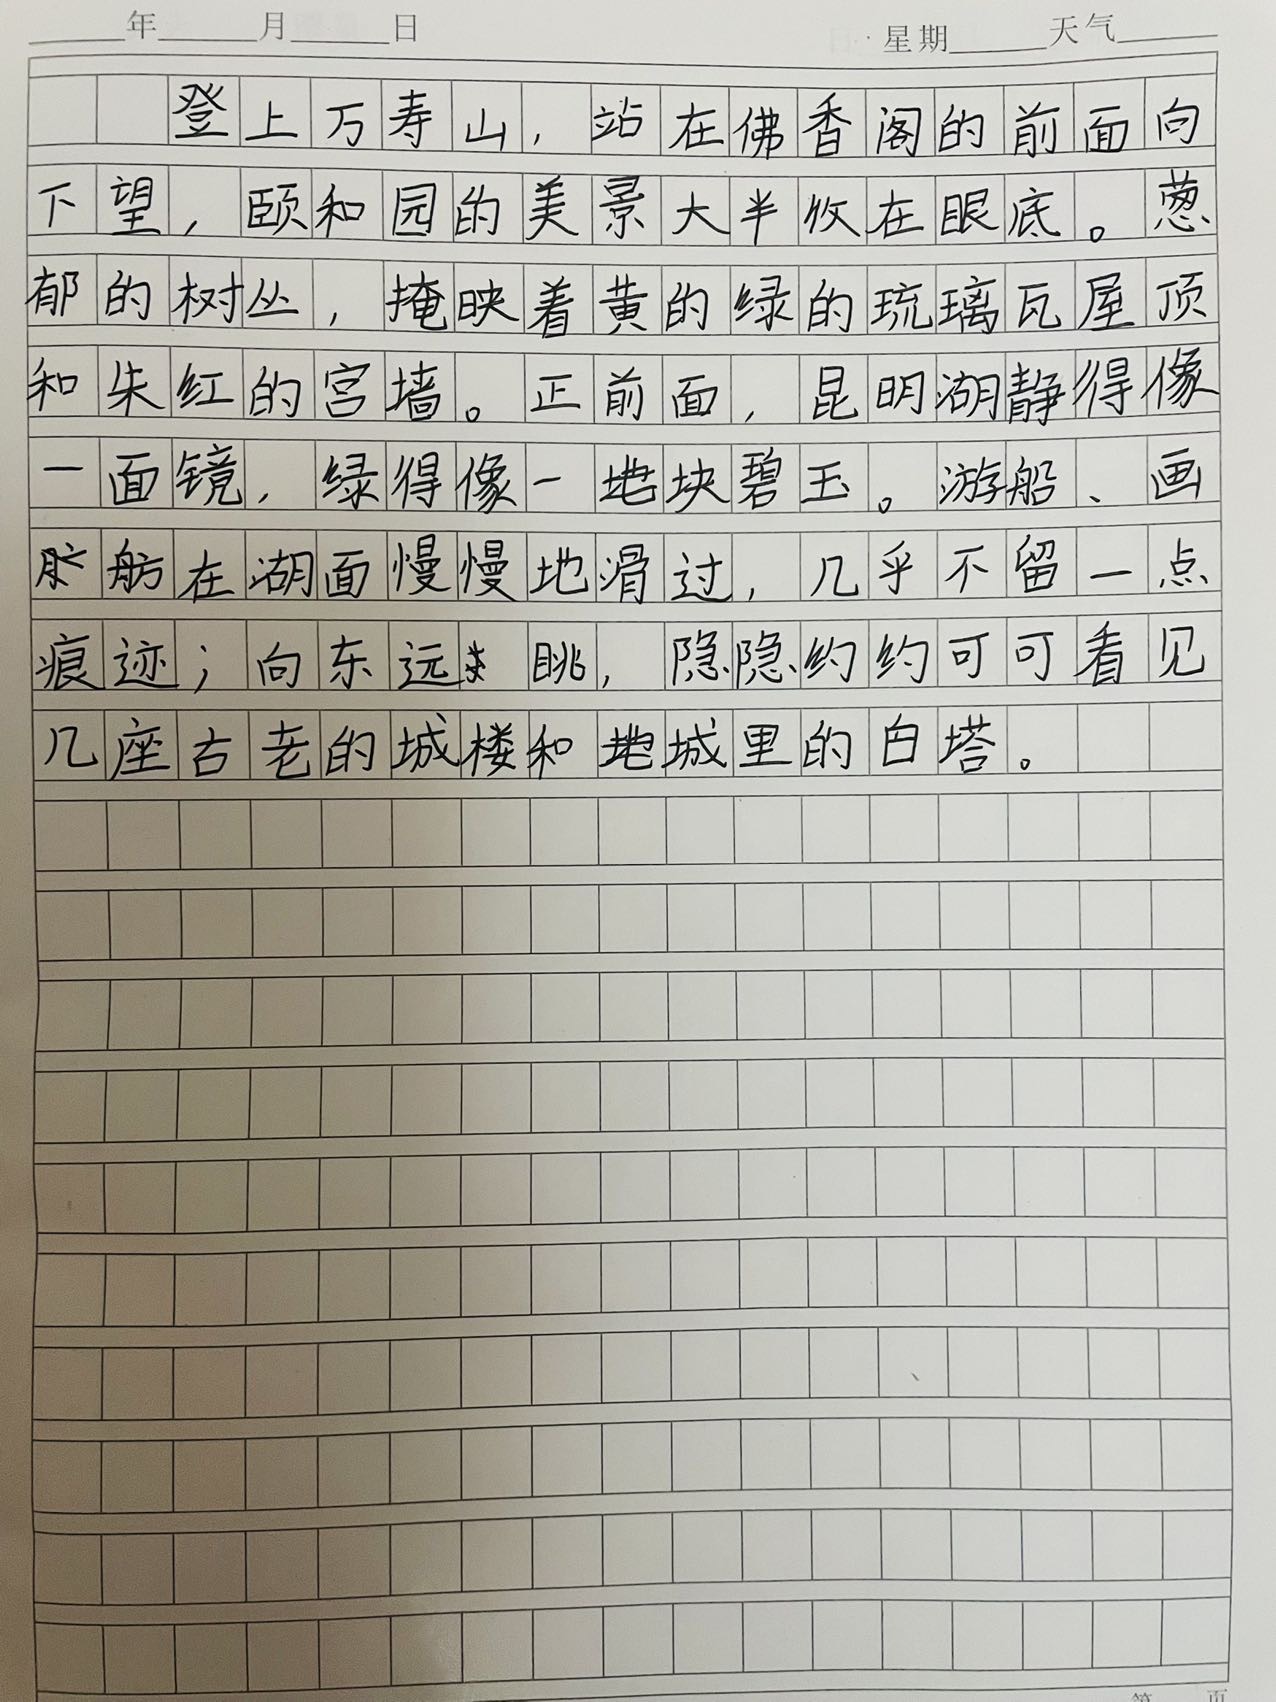 年 月 日 星期 天气
登上万寿山，站在佛香阁的前面向
下望，颐和园的美景大半收在眼底。葱
郁的树丛，掩映着黄的绿的琉璃瓦屋顶
和朱红的宫墙。正前面，昆明湖静得像
一面镜，绿得像一块碧玉。游船、画
舫在湖面慢慢地滑过，几乎不留一点
痕迹；向东远眺，隐隐约约可可看见
几座古老的城楼和城里的白塔。